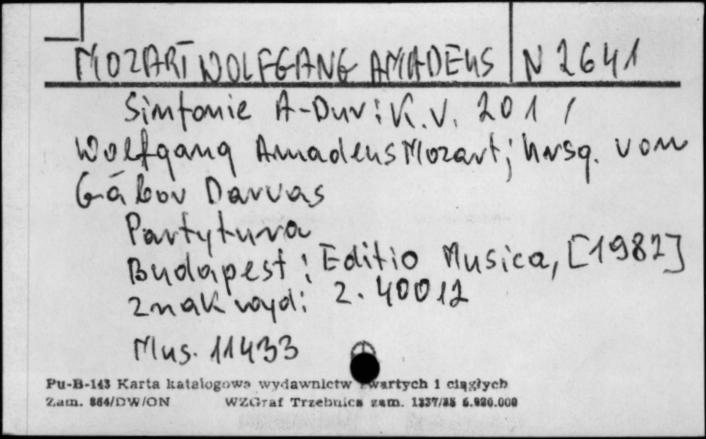 MOZART WOLFGANG AMADEUS N 2641
Simfonie A-Dur : K.V. 201 /
Wolfgang Amadeus Mozart ; hrsg. von
Gábor Darvas
Partytura
Budapest : Editio Musica, [1982]
znak wyd: Z. 40012
Mus. 11433
Pu-B-143 Karta katalogowa wydawnictw zwartych i ciągłych
Zam. 864/DW/ON WZGraf Trzebnica zam. 1237/88 5.920.000